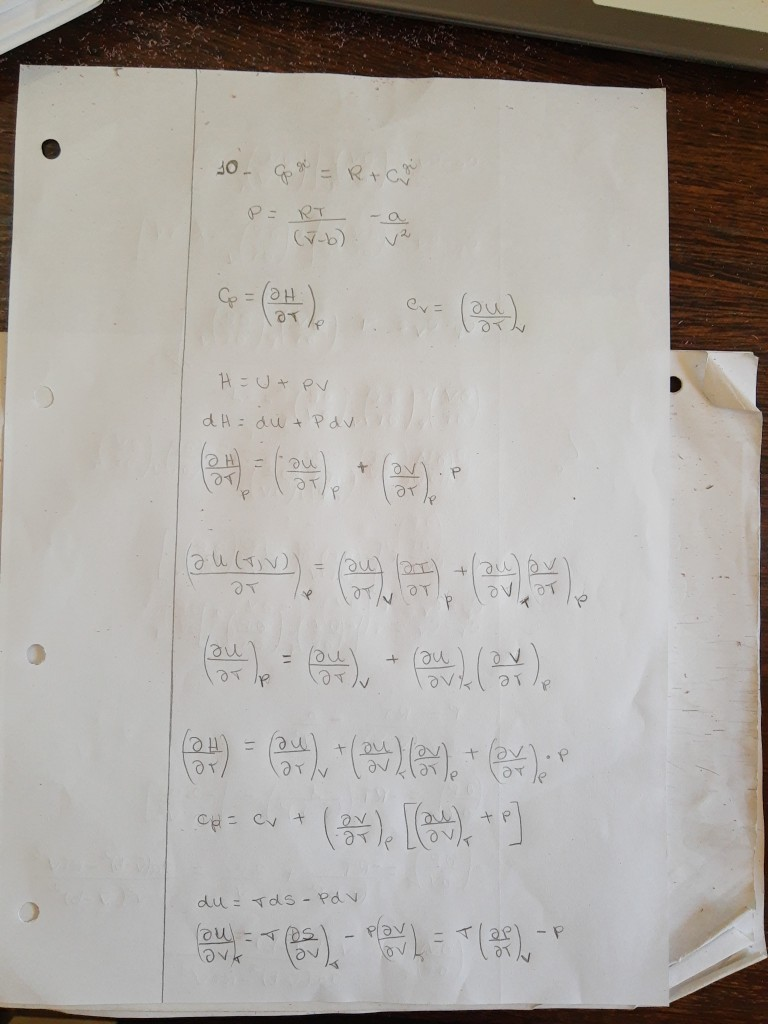 10- Cp^gi = R + Cv^gi
P = RT/(V̄-b) - a/V²
Cp = (∂H/∂T)p    Cv = (∂U/∂T)v
H = U + PV
dH = dU + PdV
(∂H/∂T)p = (∂U/∂T)p + (∂V/∂T)p · P
(∂U(T,V)/∂T)p = (∂U/∂T)v (∂T/∂T)p + (∂U/∂V)T (∂V/∂T)p
(∂U/∂T)p = (∂U/∂T)v + (∂U/∂V)T (∂V/∂T)p
(∂H/∂T) = (∂U/∂T)v + (∂U/∂V)T (∂V/∂T)p + (∂V/∂T)p · P
Cp = Cv + (∂V/∂T)p [(∂U/∂V)T + P]
dU = TdS - PdV
(∂U/∂V)T = T (∂S/∂V)T - P(∂V/∂V)T = T (∂P/∂T)v - P